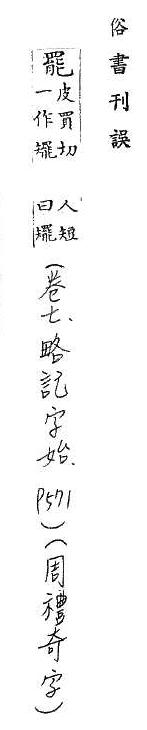 俗書刊誤
罷
皮買切
一作矲
人短
曰矲
(卷七、略記字始、P571)(周禮奇字)